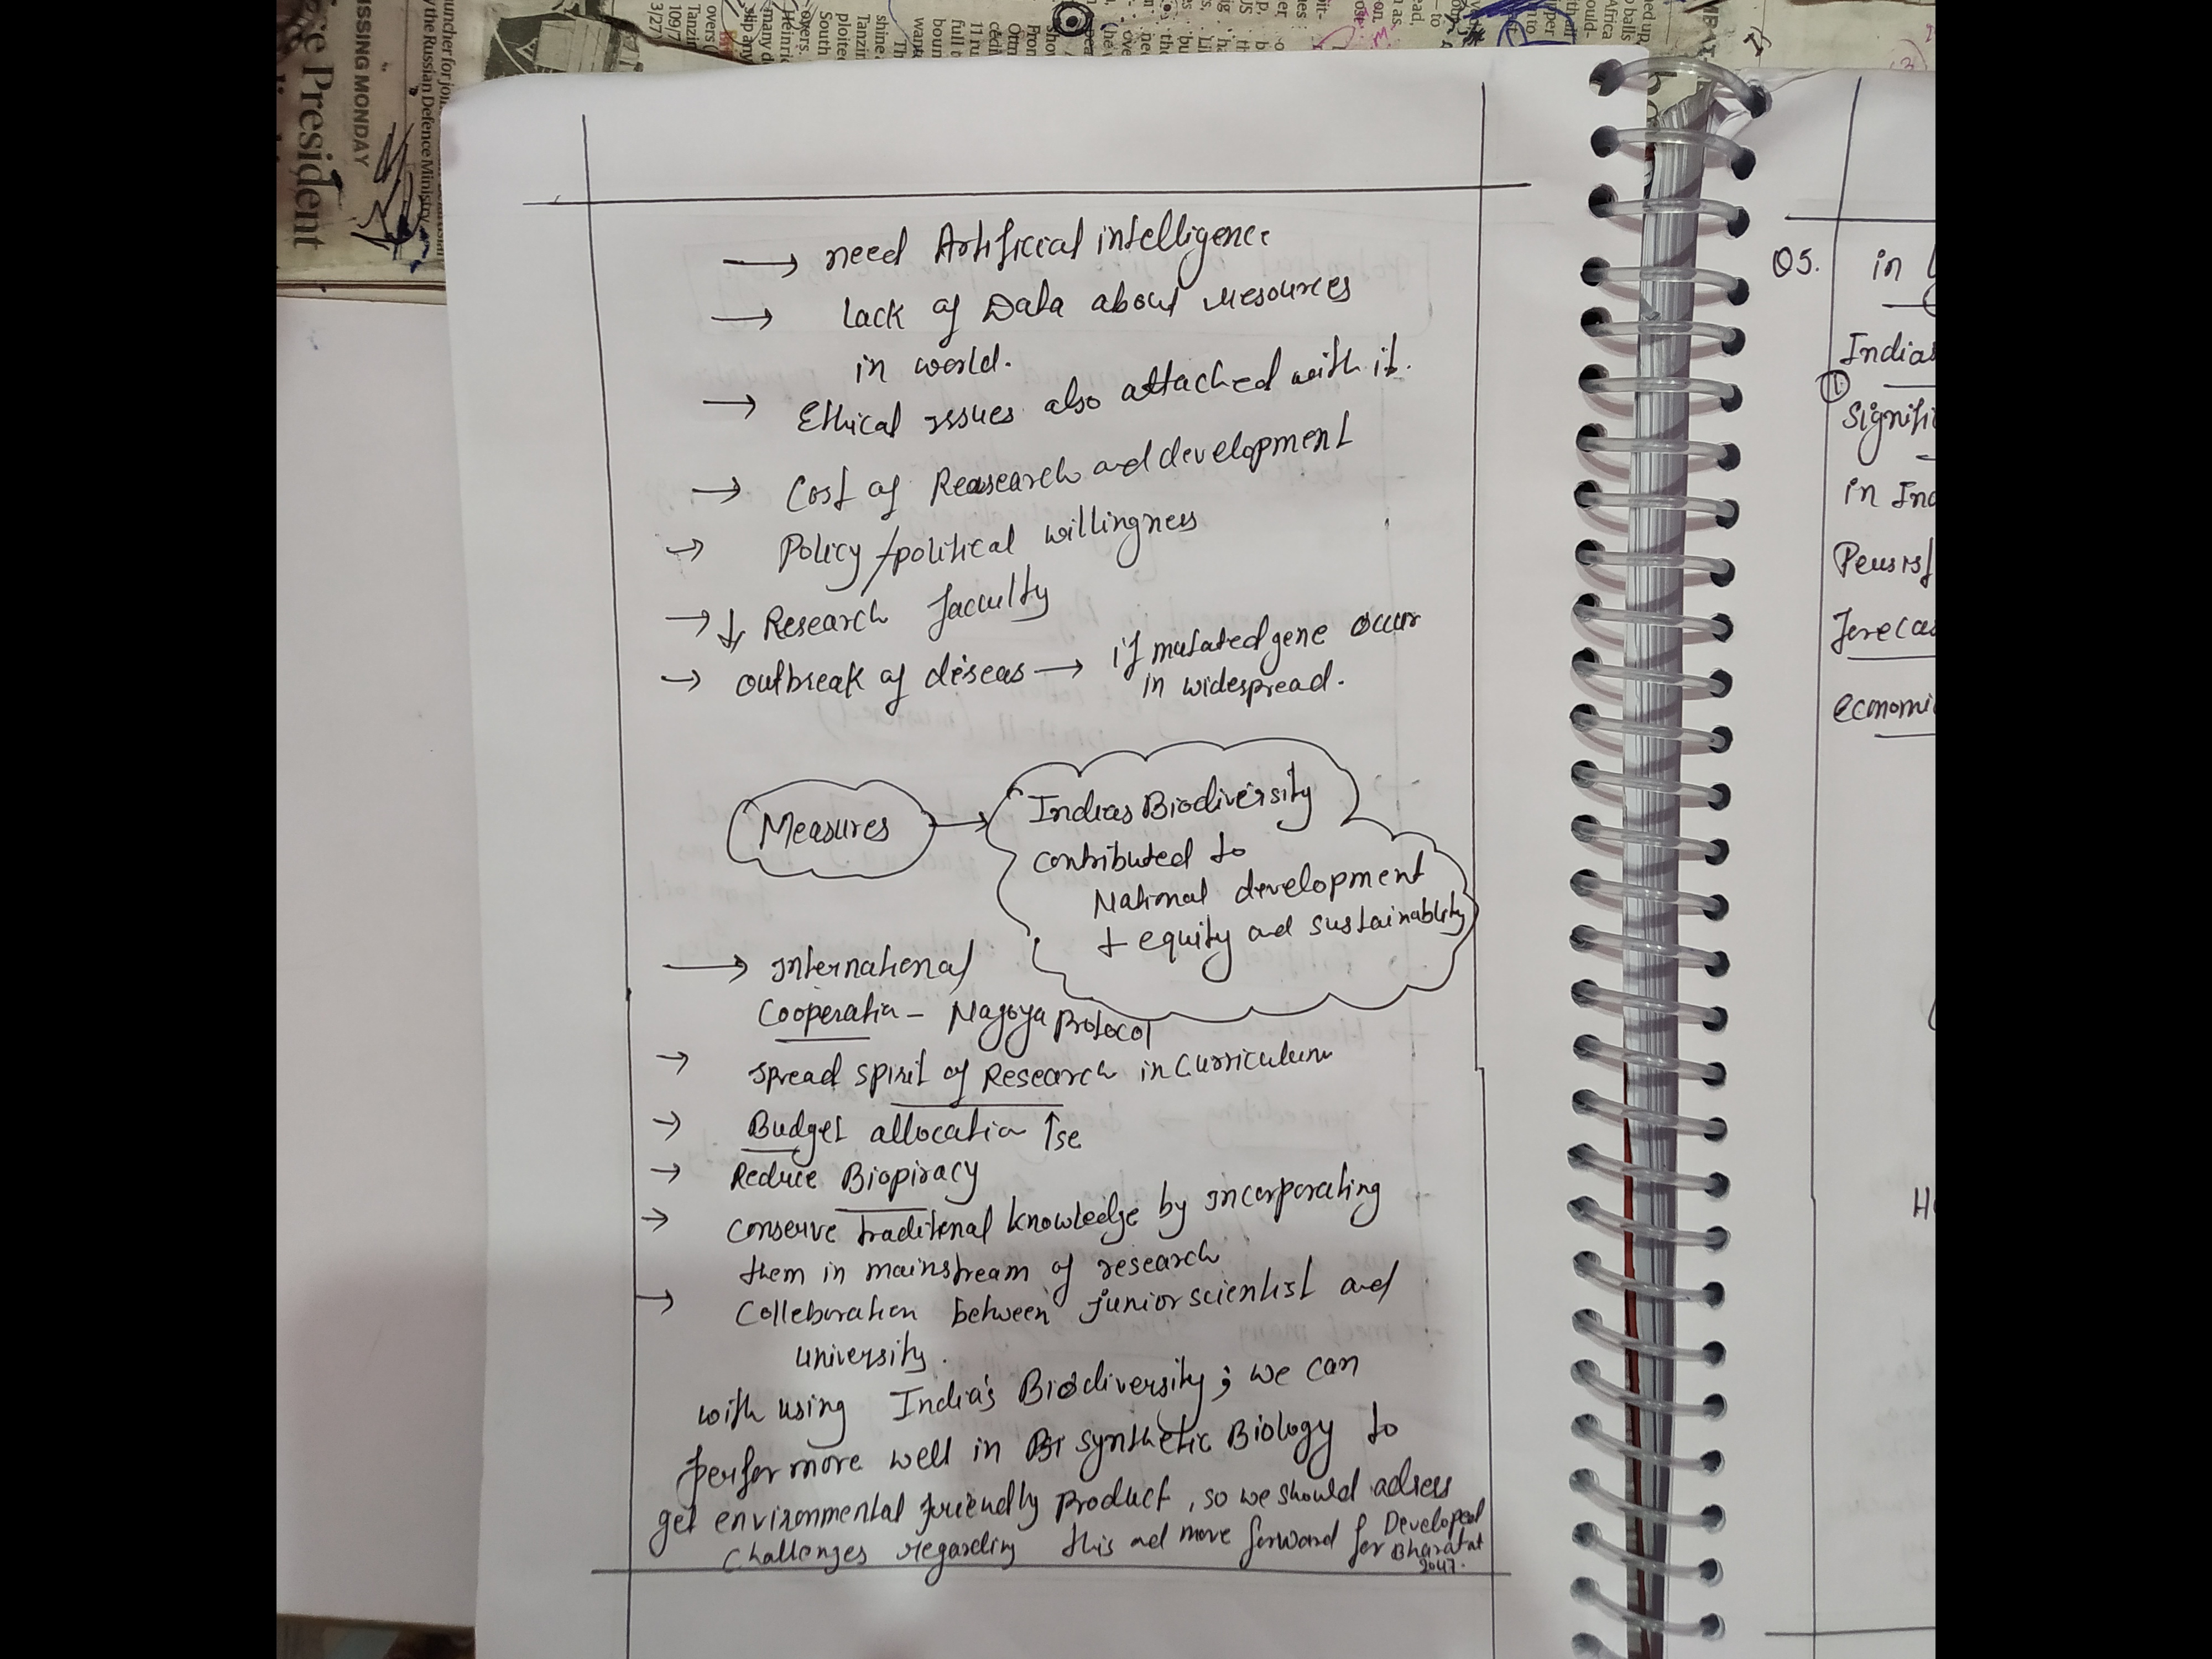 → need Artificial intelligence
→ Lack of Data about resources
in world.
→ Ethical issues also attached with it.
→ Cost of Reasearch and development
→ Policy/political willingness
→ ↓ Research faculty
→ outbreak of diseas → if mutated gene occur
in widespread.
Measures → Indias Biodiversity
contributed to
National development
+ equity and sustainablity
→ International
Cooperatin - Nagoya Protocol
→ spread spirit of Research in Curriculum
→ Budget allocation ↑se
→ Reduce Biopiracy
→ conserve traditional knowledge by incorporating
them in mainstream of research
→ Colleboration between junior scientist and
university.
with using India's Biodiversity; we can
perfor more well in Bi synthetic Biology to
get environmental friendly Product, so we should adress
challenges regarding this and move forward for Developed
Bharat at
2047.
Q5. in
Indias
Signifi
in Ind
Persist
Forecas
economi
President
SSING MONDAY
uncher for join
the Russian Defence Ministry